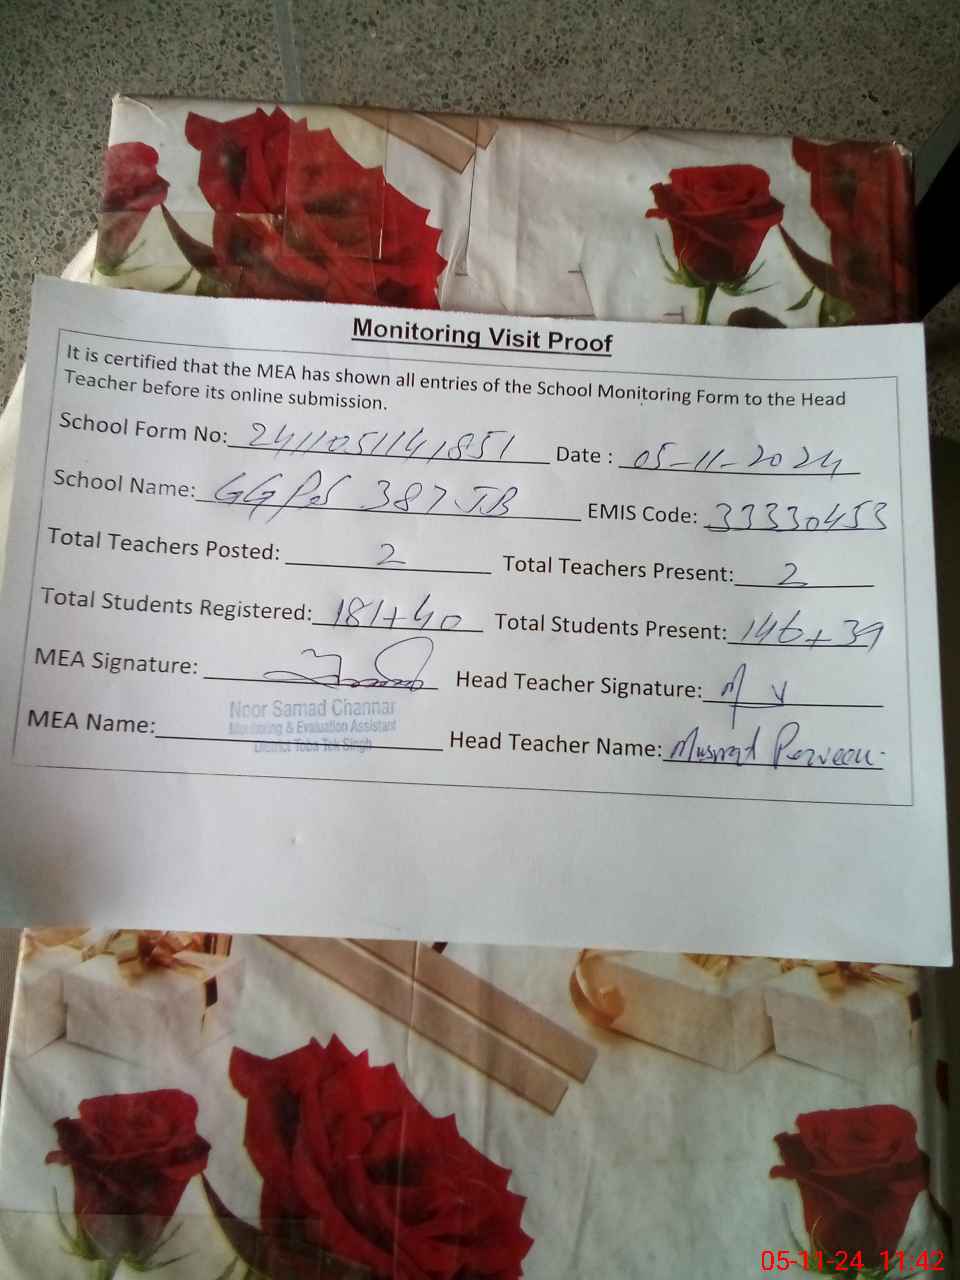 Monitoring Visit Proof
It is certified that the MEA has shown all entries of the School Monitoring Form to the Head
Teacher before its online submission.
School Form No: 2411051141851 Date : 05-11-2024
School Name: GGPS 387 JB EMIS Code: 33330453
Total Teachers Posted: 2 Total Teachers Present: 2
Total Students Registered: 181+40 Total Students Present: 146+39
MEA Signature: Head Teacher Signature:
Noor Samad Channar
Monitoring & Evaluation Assistant
District Toba Tek Singh
MEA Name: Head Teacher Name: Musrat Perveen
05-11-24 11:42